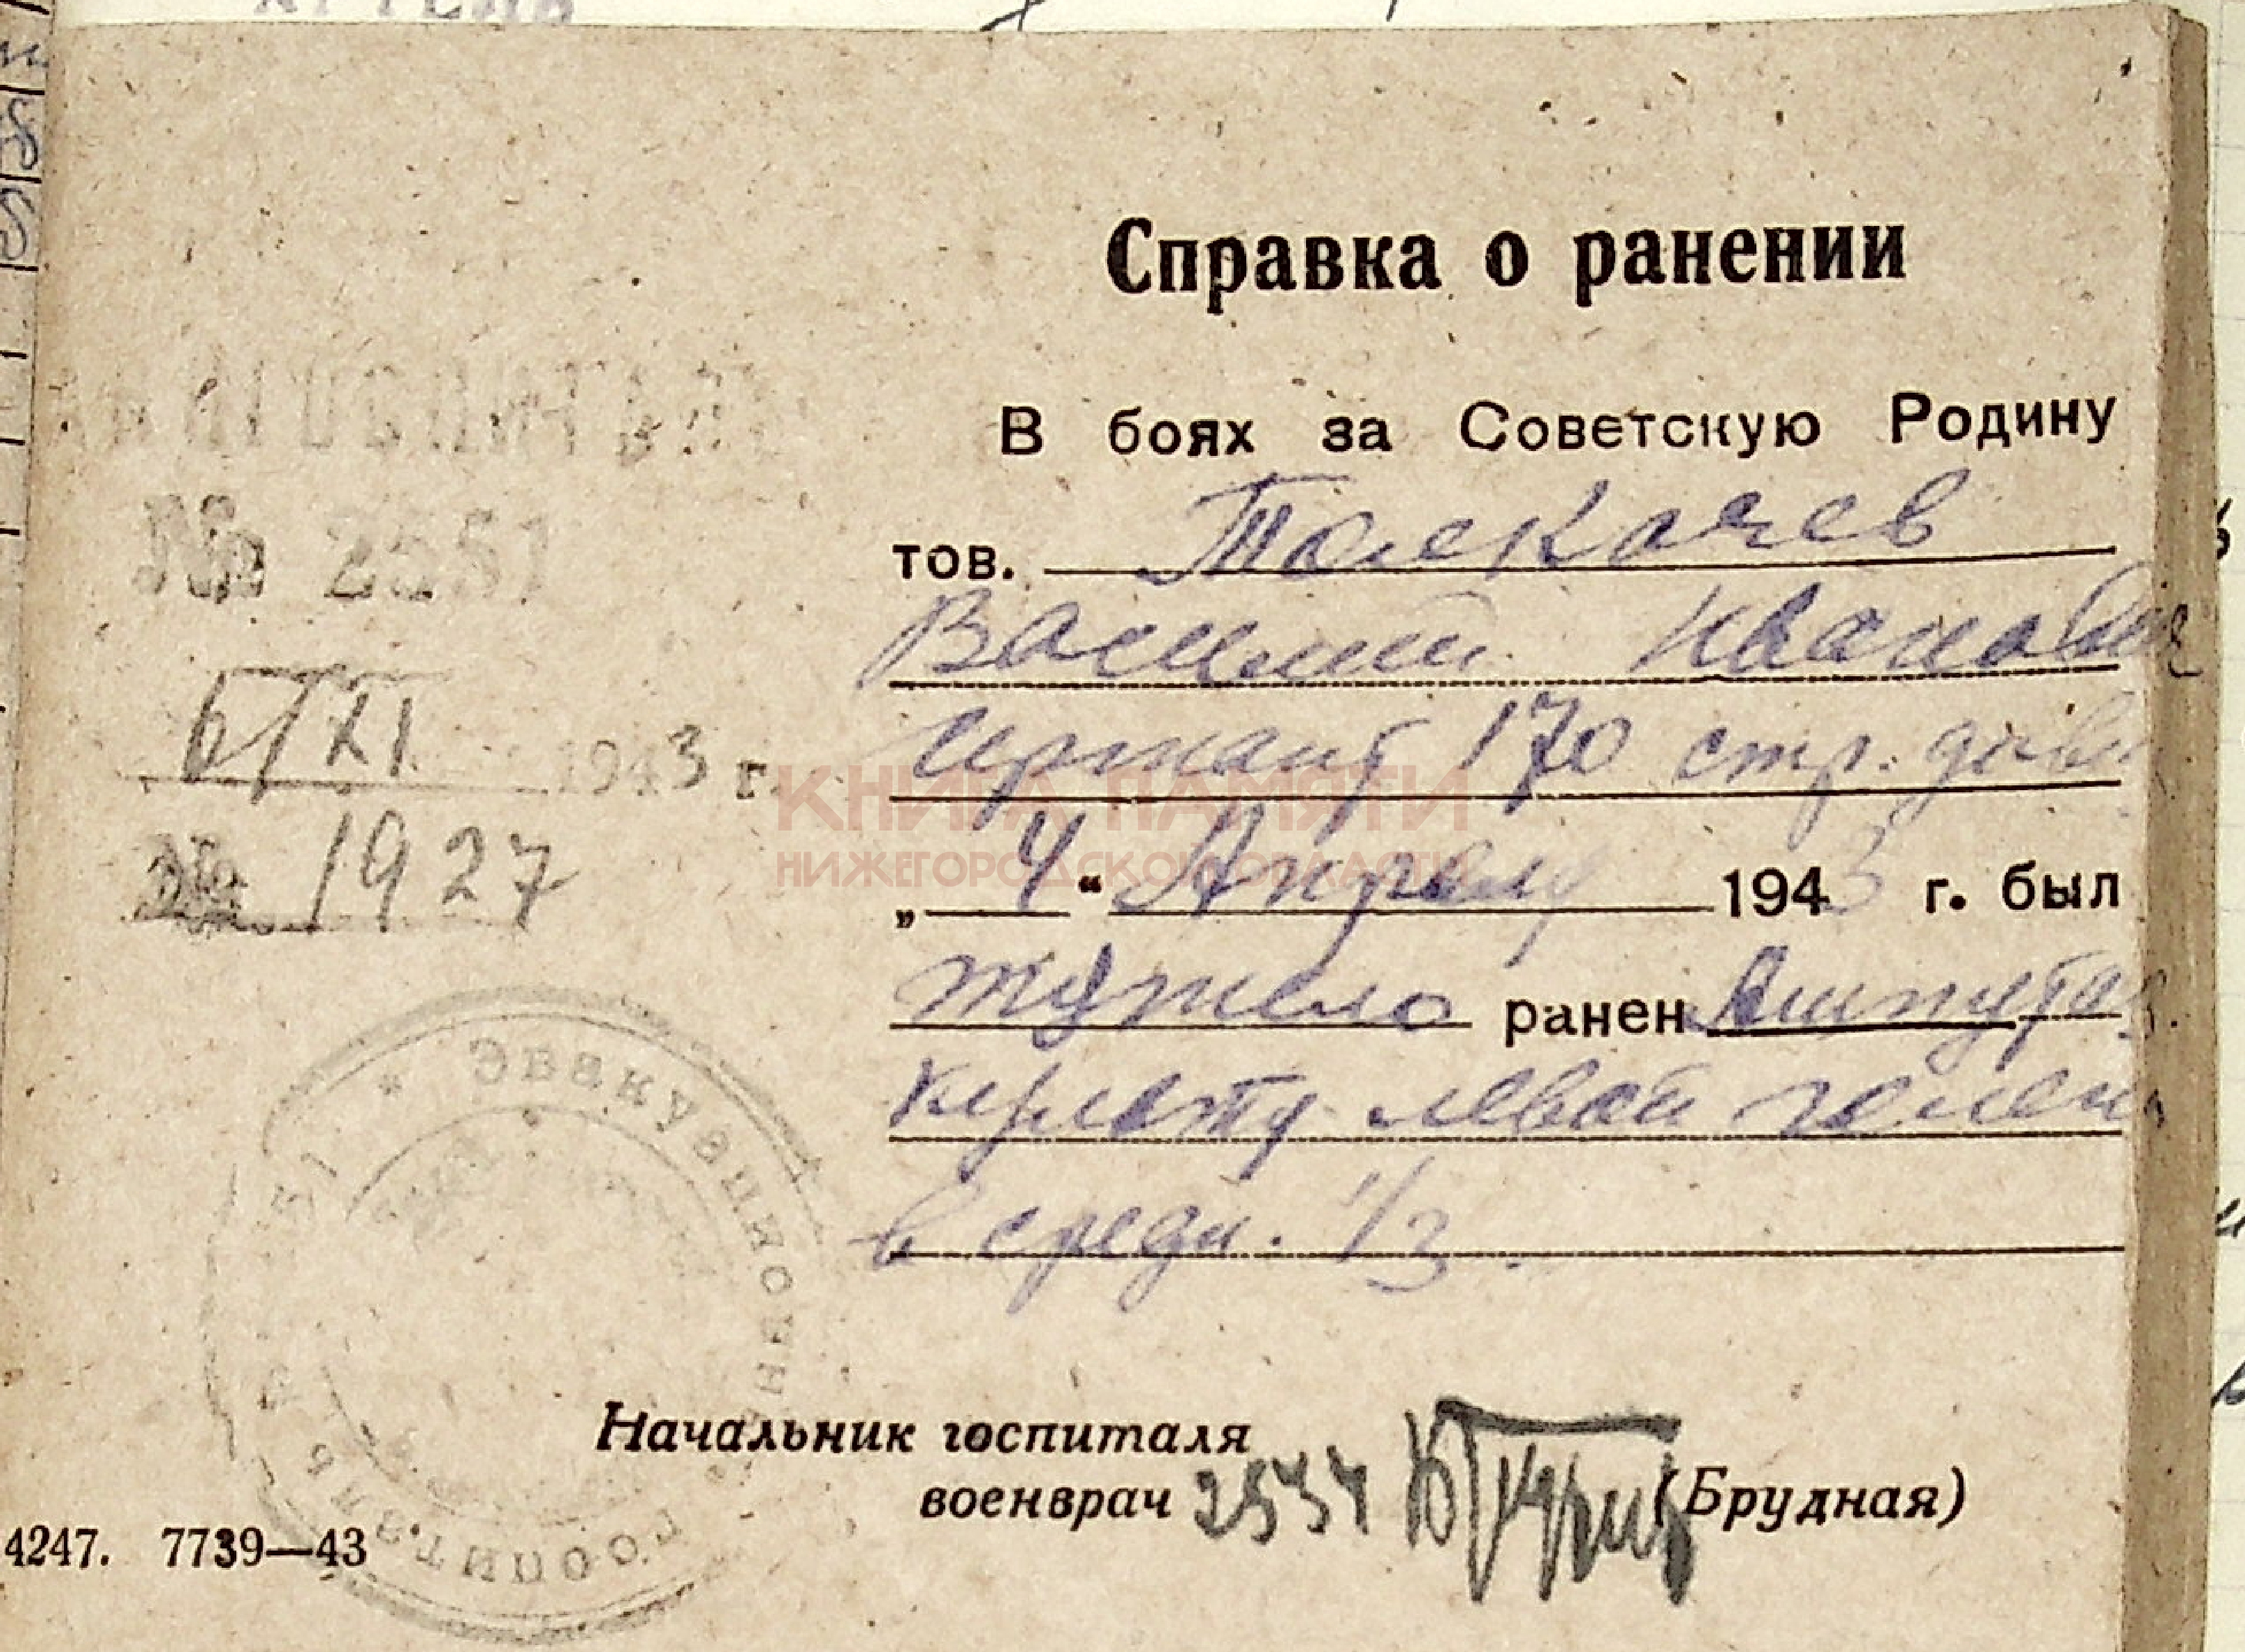 Справка о ранении
В боях за Советскую Родину
тов. Толкачев
Василий Иванович
сержант 170 стр. див.
„ 4 “ Апреля 1943 г. был
тяжело ранен Ампутац.
культя левой голени
в средн. 1/3.
№ 2531
6/XI 1943 г.
№ 1927
* Эвакуационный госпиталь
Начальник госпиталя
военврач (Брудная)
4247. 7739—43
КНИГА ПАМЯТИ
НИЖЕГОРОДСКОЙ ОБЛАСТИ